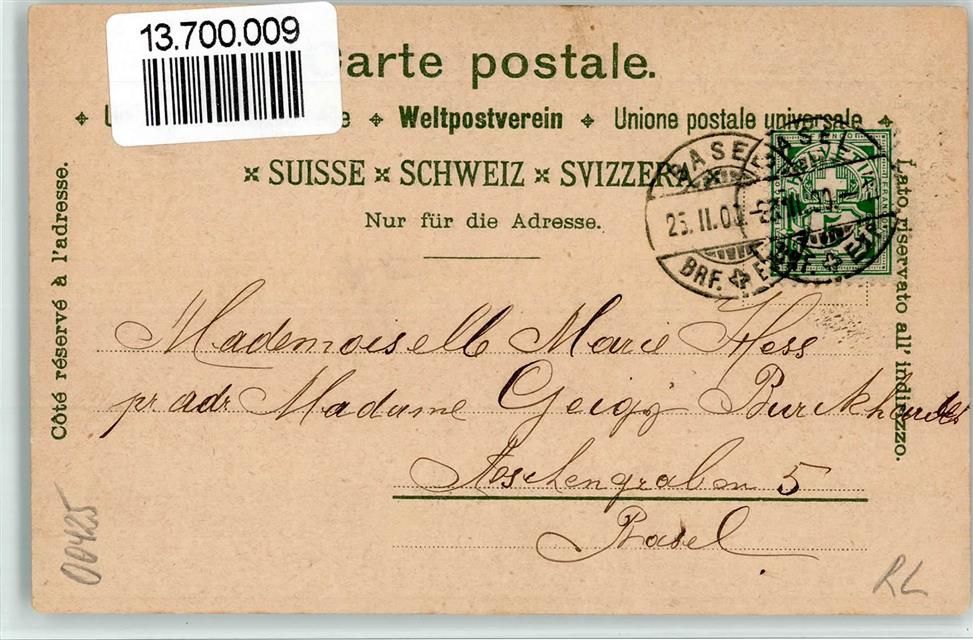 13.700.009
Carte postale.
Weltpostverein Unione postale universale
SUISSE × SCHWEIZ × SVIZZERA ×
Nur für die Adresse.
Côté réservé à l'adresse.
Lato riservato all' indirizzo.
BASEL BASEL
BRF.
Mademoiselle Marie Hess
pr adr. Madame Geigy Burckhardt
Aeschengraben 5
Basel
00425
RL